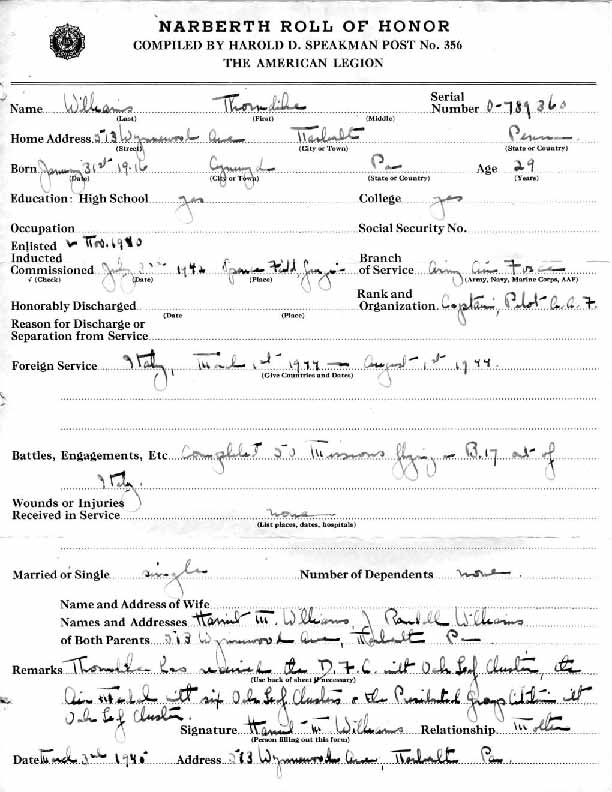 NARBERTH ROLL OF HONOR
COMPILED BY HAROLD D. SPEAKMAN POST No. 356
THE AMERICAN LEGION
Name Williams Thorndike Serial Number O-789360
(Last) (First) (Middle)
Home Address 513 Wynnewood Ave Narberth Penna
(Street) (City or Town) (State or Country)
Born January 31st 1916 Cynwyd Pa Age 29
(Date) (City or Town) (State or Country) (Years)
Education: High School yes College yes
Occupation Social Security No.
Enlisted ✓ Nov. 1940
Inducted Branch
Commissioned July 1942 Spence Field Georgia of Service Army Air Force
√ (Check) (Date) (Place) (Army, Navy, Marine Corps, AAF)
Rank and
Honorably Discharged Organization Captain, Pilot A.A.F.
(Date (Place)
Reason for Discharge or
Separation from Service
Foreign Service Italy, March 1st 1944 — August 1st 1944.
(Give Countries and Dates)
Battles, Engagements, Etc Completed 50 Missions flying a B.17 out of
Italy.
Wounds or Injuries
Received in Service none
(List places, dates, hospitals)
Married or Single single Number of Dependents none
Name and Address of Wife
Names and Addresses Harriet M. Williams, J Randall Williams
of Both Parents 513 Wynnewood Ave, Narberth Pa
Remarks Thorndike has received the D.F.C. with Oak Leaf Cluster, the
(Use back of sheet if necessary)
Air Medal with six Oak Leaf Clusters & the Presidential Group Citation with
Oak Leaf Cluster.
Signature Harriet M Williams Relationship Mother
(Person filling out this form)
Date March 3rd 1945 Address 513 Wynnewood Ave Narberth Pa